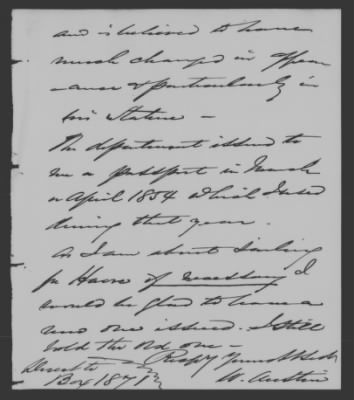 and is believed to have
much changed in appear
-ance & particularly in
his stature -
The department issued to
me a passport in March
or April 1854 which I used
during that year.
As I am about sailing
for Havre if necessary I
would be glad to have a
new one issued. I still
hold the old one -
Respy Yours Obdt
Direct to
Box 1871
W. Austin